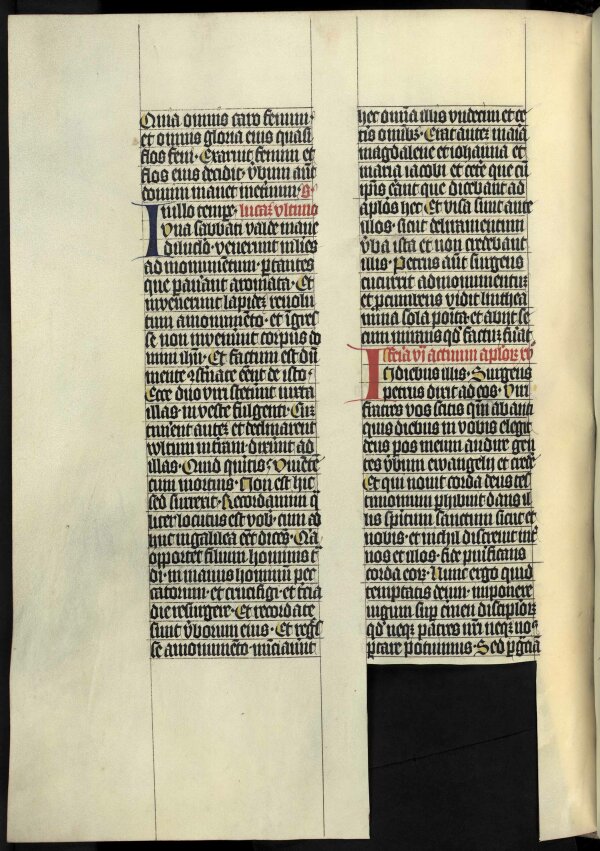 Quia omnis caro fenum·
et omnis gloria eius quasi
flos feni· Exaruit fenum et
flos eius decidit· v̄bum aūt
domini manet ineternum·
In illo tempe· lucas vltimo
Una sabbati valde mane
diluculo· venerunt mulieres
ad monumentum· portantes
que parauerant aromata· Et
inuenerunt lapidē reuolu
tum a monumēto· et īgres
se non inuenerunt corpus do
mini ihu· Et factum est dū
mente ɔsternate eent de isto·
Ecce duo viri steterunt iuxta
illas in veste fulgenti· Cū
timerent autē et declinarent
vltum in terram· dixerunt ad
illas· Quid queritis viuētē
cum mortuis· Non est hic
sed surrexit· Recordamini q̄
liter locutus est vob̄· cum ad
huc in galilea eet dicēs· Qa
opportet filium hominis t͛
di· in manus hominum pec
catorum· et crucifigi· et t͛cia
die resurgere· Et recordate
sunt v̄borum eius· Et regʳs
se a monumēto· nūciauerūt
hec omīa illis vndecim et ce
tis omībꝫ· Erat autē maria
magdalene et iohanna et
maria iacobi et cetere que cū
ip̄is erant que dicebant ad
ap̄los hec· Et visa sunt ante
illos· sicut deliramentum
v̄ba ista et non credebant
illis· Petrus aūt surgens
cucurrit ad monumentum
et procumbens vidit linthea
mina sola posita· et abiit se
cum mirans qd̄ factū fuāt
Feria vj actuum aploꝝ xv
In diebus illis· Surgens
petrus dixit ad eos· Viri
fratres vos scitis qm̄ ab anti
quis diebus in vobis elegit
deus p os meum audire gen
tes v̄bum ewangelij et cređe
Et qui nouit corda deus tes
timonium phibuit dans il
lis sp̄iritum sanctum sicut et
nobis· et nichil discreuit int͛
nos et illos· fide purificans
corda eoꝝ· Nunc ergo quid
temptatis deum· imponere
iugum sup̄ ceruicem discipuloꝝ
qd̄ neqꝫ patres nr̄i neqꝫ nos
portare potuimus· Sed p gr̄ciā